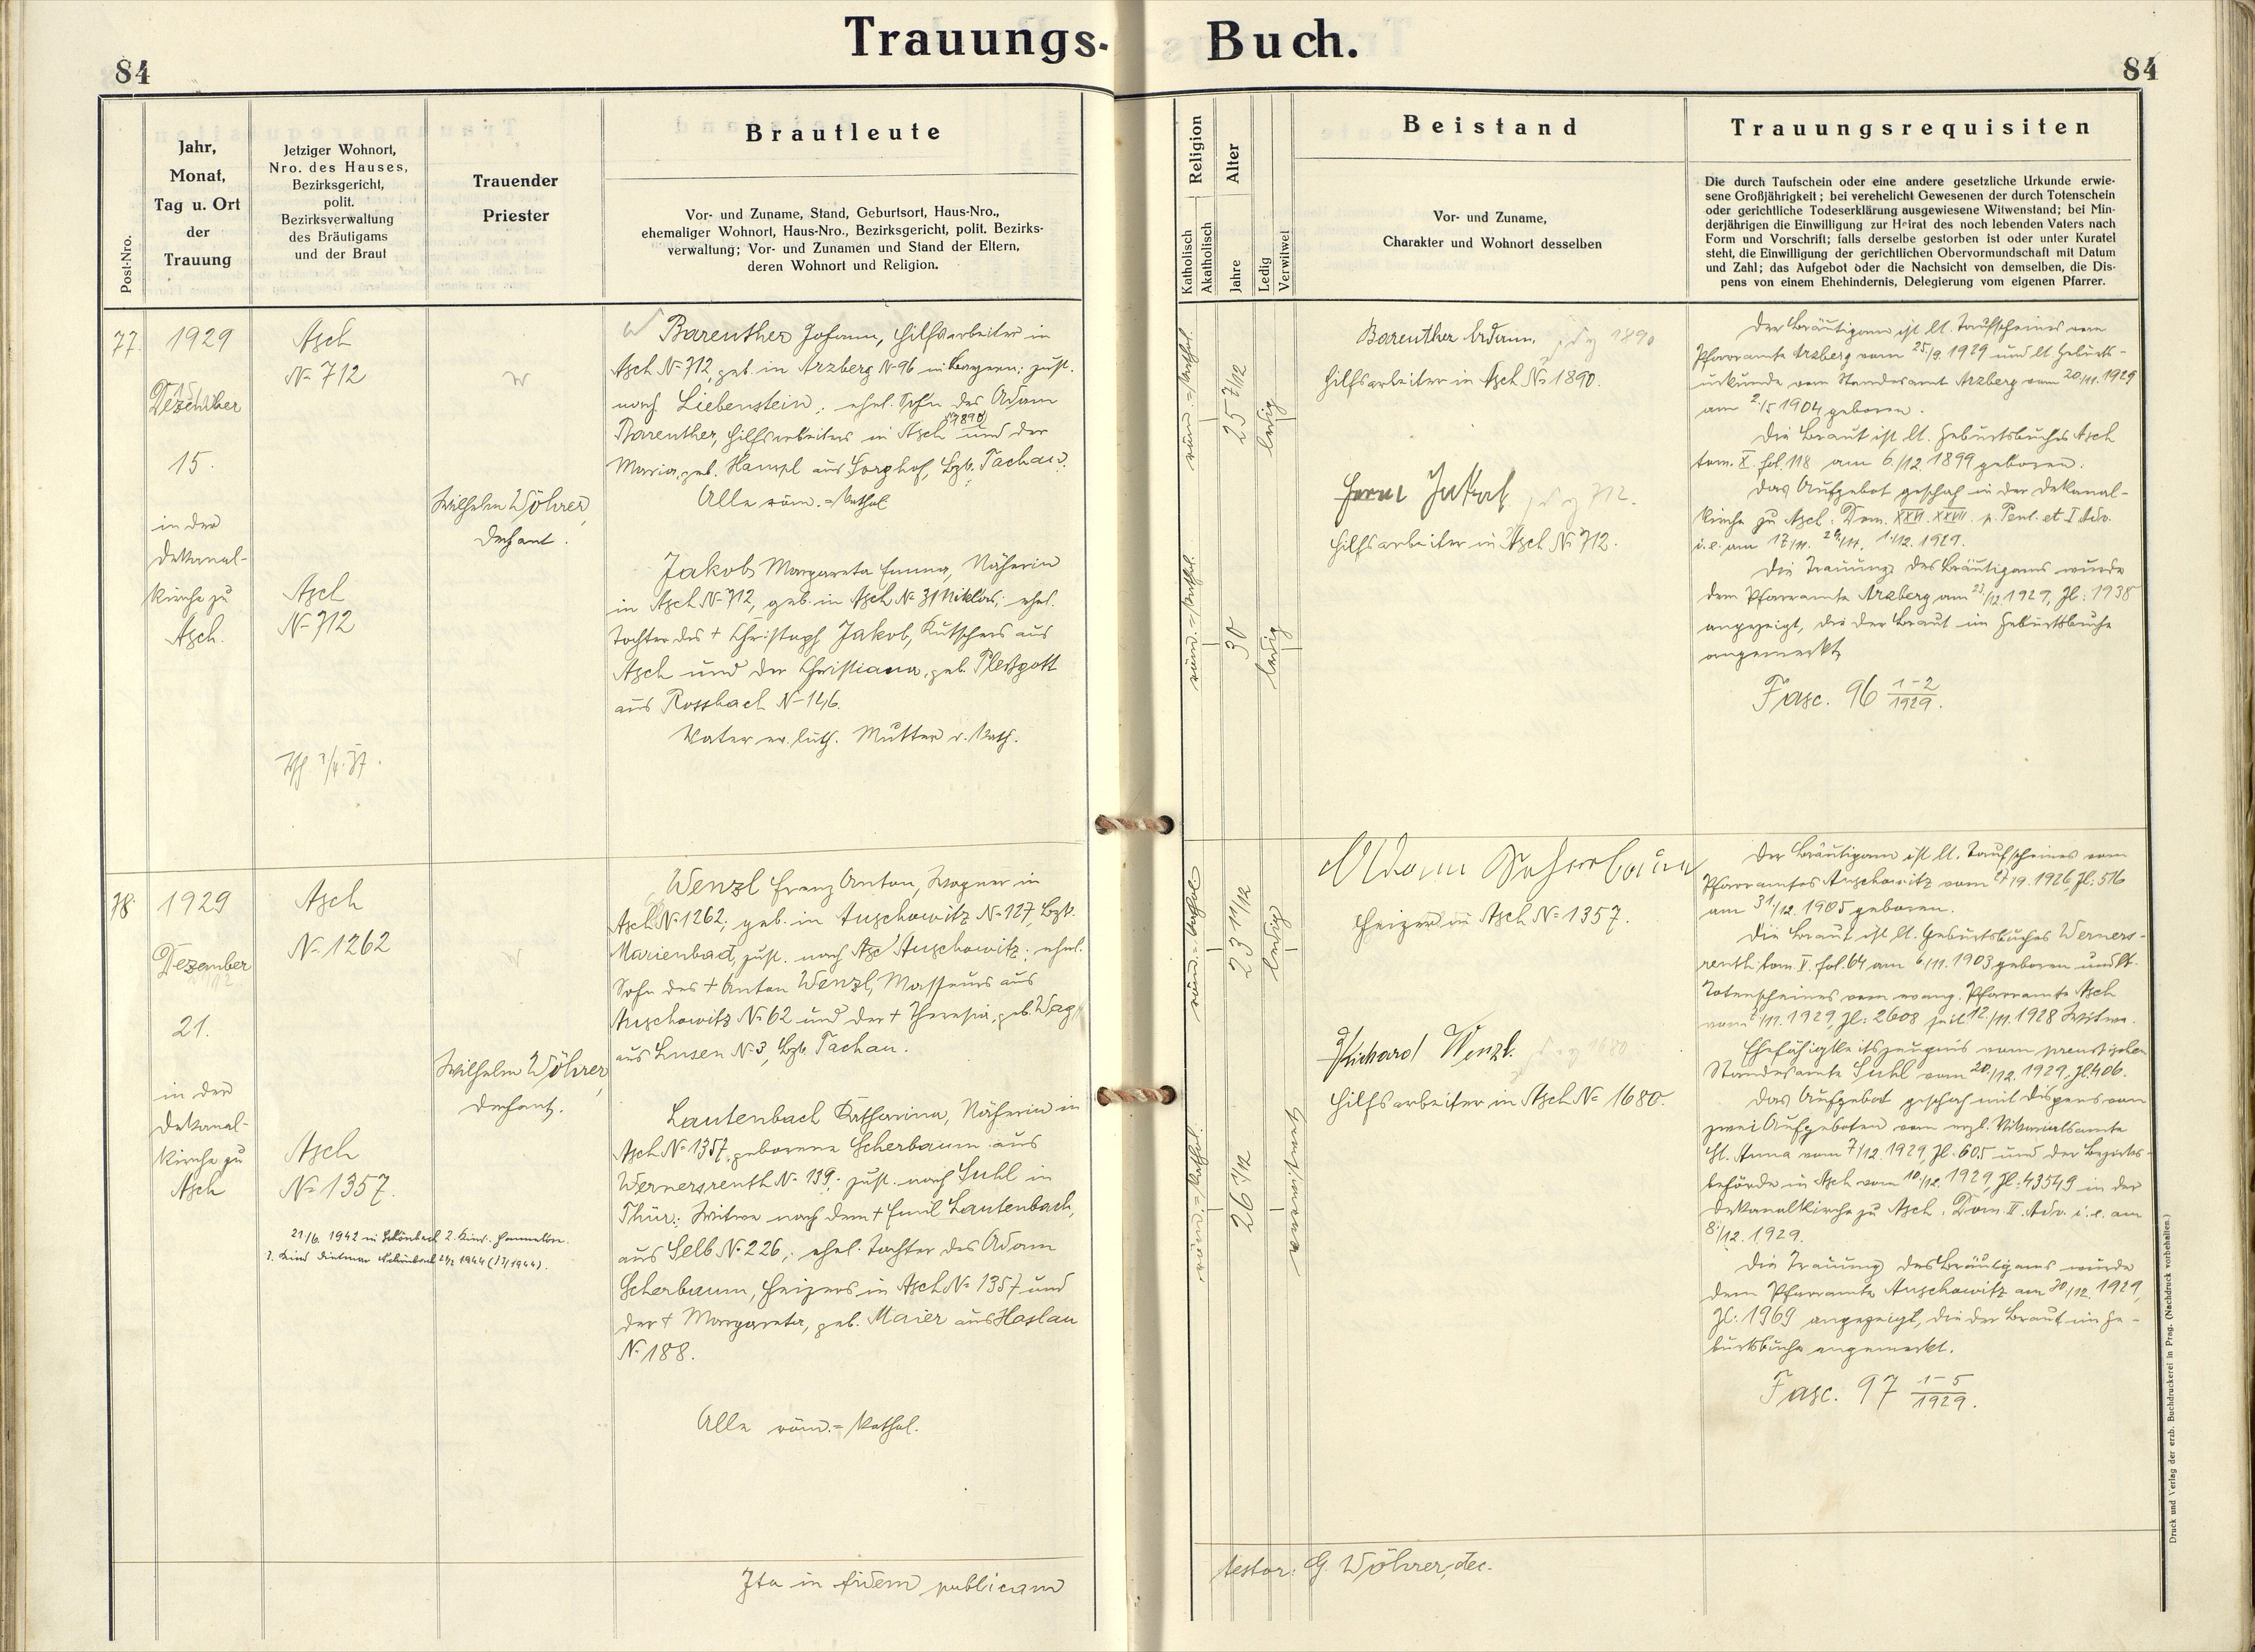 Trauungs-Buch.
84
84
Post-Nro.
Jahr,
Monat,
Tag u. Ort
der
Trauung
Jetziger Wohnort,
Nro. des Hauses,
Bezirksgericht,
polit.
Bezirksverwaltung
des Bräutigams
und der Braut
Trauender
Priester
Brautleute
Vor- und Zuname, Stand, Geburtsort, Haus-Nro.,
ehemaliger Wohnort, Haus-Nro., Bezirksgericht, polit. Bezirks-
verwaltung; Vor- und Zunamen und Stand der Eltern,
deren Wohnort und Religion.
Religion
Katholisch
Akatholisch
Alter
Jahre
Ledig
Verwitwet
Beistand
Vor- und Zuname,
Charakter und Wohnort desselben
Trauungsrequisiten
Die durch Taufschein oder eine andere gesetzliche Urkunde erwie-
sene Großjährigkeit; bei verehelicht Gewesenen der durch Totenschein
oder gerichtliche Todeserklärung ausgewiesene Witwenstand; bei Min-
derjährigen die Einwilligung zur Heirat des noch lebenden Vaters nach
Form und Vorschrift; falls derselbe gestorben ist oder unter Kuratel
steht, die Einwilligung der gerichtlichen Obervormundschaft mit Datum
und Zahl; das Aufgebot oder die Nachsicht von demselben, die Dis-
pens von einem Ehehindernis, Delegierung vom eigenen Pfarrer.
77.
1929
Dezember
15.
in der
Dekanal-
kirche zu
Asch.
Asch
N= 712
Asch
N= 712
Wilhelm Wöhrer,
Dechant.
Barenther Johann, Hilfsarbeiter in
Asch N= 712, geb. in Arzberg N= 96 in Bayern; zust.
nach Liebenstein; ehel. Sohn des Adam
Barenther, Hilfsarbeiters in Asch (N 1890) und der
Maria, geb. Hampl aus Sorghof, Bzk. Tachau.
Alle röm.=kathol.
Jakob Margareta Emma, Näherin
in Asch N= 712, geb. in Asch N= 31 Niklas; ehel.
Tochter des + Christoph Jakob, Kutschers aus
Asch und der Christiana, geb. Pleßgott
aus Rossbach N= 146.
Vater ev. luth. Mutter r. kath.
röm.=kathol.
25 7/12
ledig
röm.=kathol.
30
ledig
Barenther Adam.
Hilfsarbeiter in Asch N= 1890.
Jakob
Hilfsarbeiter in Asch N= 712.
Der Bräutigam ist lt. Taufscheines vom
Pfarramte Arzberg vom 25/9. 1929 und lt. Geburts-
urkunde vom Standesamt Arzberg vom 20/11. 1929
am 2./5 1904 geboren.
Die Braut ist lt. Geburtsbuches Asch
tom. X. fol. 118 am 6./12. 1899 geboren.
Das Aufgebot geschah in der Dekanal-
kirche zu Asch: Dom. XXVI. XXVII. p. Pent. et I Adv.
i. e. am 17/11. 24/11. 1./12. 1929.
Die Trauung des Bräutigams wurde
dem Pfarramte Arzberg am 23/12. 1929, Zl: 1938
angezeigt, die der Braut im Geburtsbuche
angemerkt.
Fasc. 96 1-2/1929.
78.
1929
Dezember
21.
in der
Dekanal-
kirche zu
Asch
Asch
N= 1262
Asch
N= 1357.
21/6. 1942 in Schönbach 2. Kind
3. Kind Dietmar Schönbach 1944
Wilhelm Wöhrer,
Dechant.
Wenzl Franz Anton, Wagner in
Asch N= 1262; geb. in Auschowitz N= 127, Bzk.
Marienbad, zust. nach Auschowitz; ehel.
Sohn des + Anton Wenzl, Masseurs aus
Auschowitz N= 62 und der + Theresia, geb. Wag
aus Lusen N= 3, Bzk. Tachau.
Lautenbach Katharina, Näherin in
Asch N= 1357, geborene Scherbaum aus
Wernersreuth N= 139; zust. nach Suhl in
Thür.: Witwe nach dem + Emil Lautenbach,
aus Selb N= 226; ehel. Tochter des Adam
Scherbaum, Heizers in Asch N= 1357 und
der + Margareta, geb. Maier aus Haslau
N= 188.
Alle röm.=kathol.
röm.=kathol.
23 11/12
ledig
röm.=kathol.
26 1/12
verwitwet
Adam Scherbaum
Heizer in Asch N= 1357.
Richard Wenzl.
Hilfsarbeiter in Asch N= 1680.
Der Bräutigam ist lt. Taufscheines vom
Pfarramtes Auschowitz vom 27/9. 1926, Zl: 516
am 31/12. 1905 geboren.
Die Braut ist lt. Geburtsbuches Werners-
reuth tom. V. fol. 64 am 6./11. 1903 geboren und lt.
Totenscheines vom evang. Pfarramte Asch
vom /11. 1929, Zl: 2608 seit 12./11. 1928 Witwe.
Ehefähigkeitszeugnis vom preussischen
Standesamte Suhl vom 20./12. 1929, Zl: 406.
Das Aufgebot geschah mit Dispens von
zwei Aufgeboten vom erzb. Vikariatsamte
St. Anna vom 7/12. 1929, Zl: 605 und der Bezirks-
behörde in Asch vom 10/12. 1929, Zl: 43549 in der
Dekanalkirche zu Asch: Dom. II. Adv. i. e. am
8./12. 1929.
Die Trauung des Bräutigams wurde
dem Pfarramte Auschowitz am 30/12. 1929,
Zl: 1969 angezeigt, die der Braut im Ge-
burtsbuche angemerkt.
Fasc. 97 1-5/1929.
Ita in fidem publicam
testor: G. Wöhrer, dec.
Druck und Verlag der erzb. Buchdruckerei in Prag. (Nachdruck vorbehalten.)